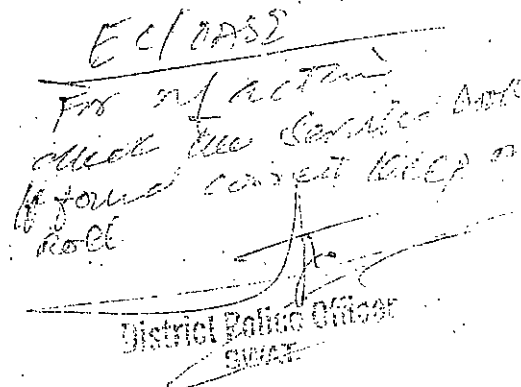 EC/OASI
For n/ action
check the Service Book
If found correct keep on
Roll
District Police Officer
SWAT